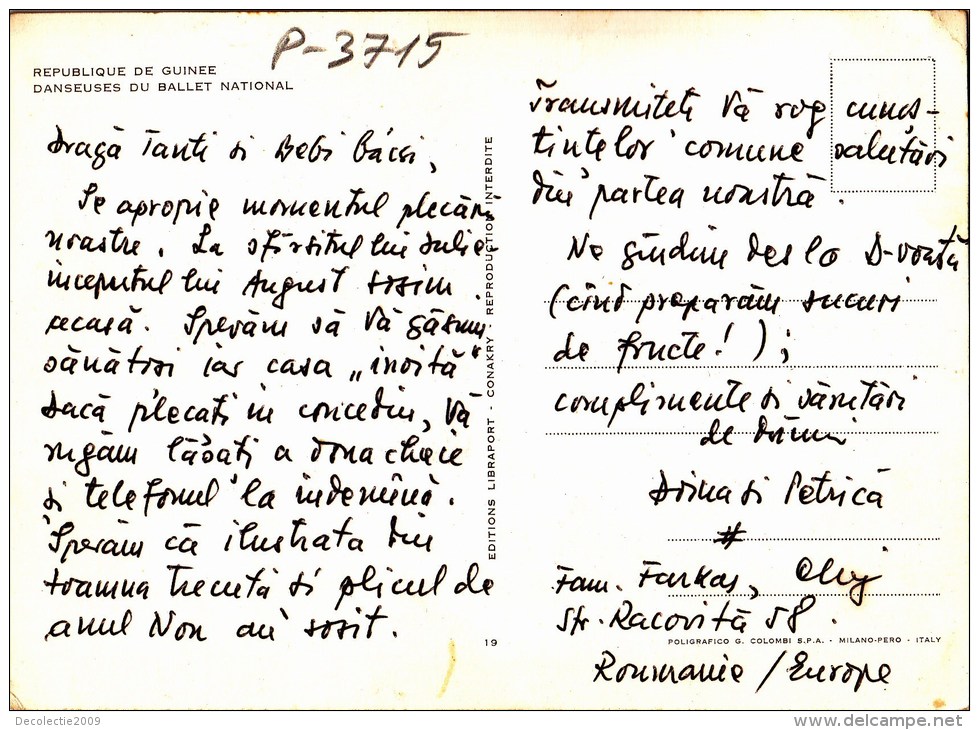 P-3715
REPUBLIQUE DE GUINEE
DANSEUSES DU BALLET NATIONAL
Dragă Tanti si Bebi bácsi,
Se apropie momentul plecării
noastre. La sfîrsitul lui Iulie
inceputul lui August sosim
acasă. Sperăm să Vă găsim
sănătosi iar casa „invită"
Dacă plecati in concediu, Vă
rugăm lăsati a doua cheie
si telefonul la indemînă.
Sperăm că ilustrata din
toamna trecută si plicul de
anul Nou au sosit.
EDITIONS LIBRAPORT - CONAKRY - REPRODUCTION INTERDITE
19
Transmiteti Vă rog cunos-
tintelor comune salutări
din partea noastră.
Ne gîndim des la D-voastă
(cînd preparăm sucuri
de fructe!);
complimente si sărutări
de drum
Doina si Petrică
#
Fam. Farkas, Cluj
Str. Racovită 58.
POLIGRAFICO G. COLOMBI S.P.A. - MILANO-PERO - ITALY
Roumanie / Europe
Decolectie2009
www.delcampe.net